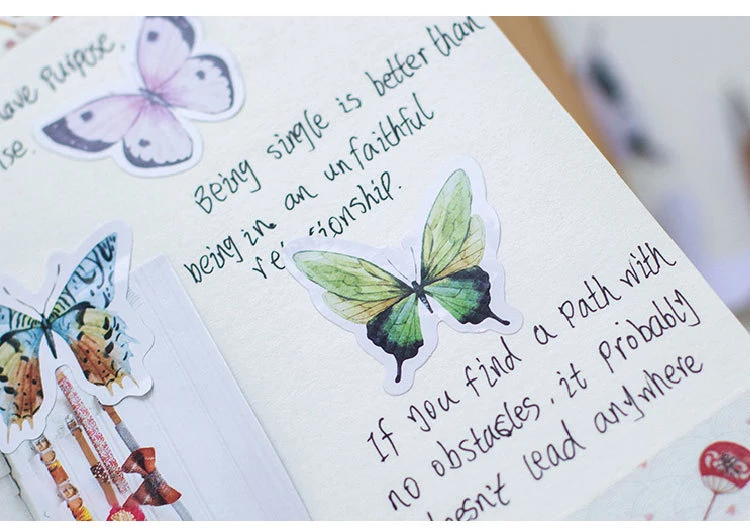 have purpose,
ise.
Being single is better than
being in an unfaithful
relationship.
If you find a path with
no obstacles, it probably
doesn't lead anywhere